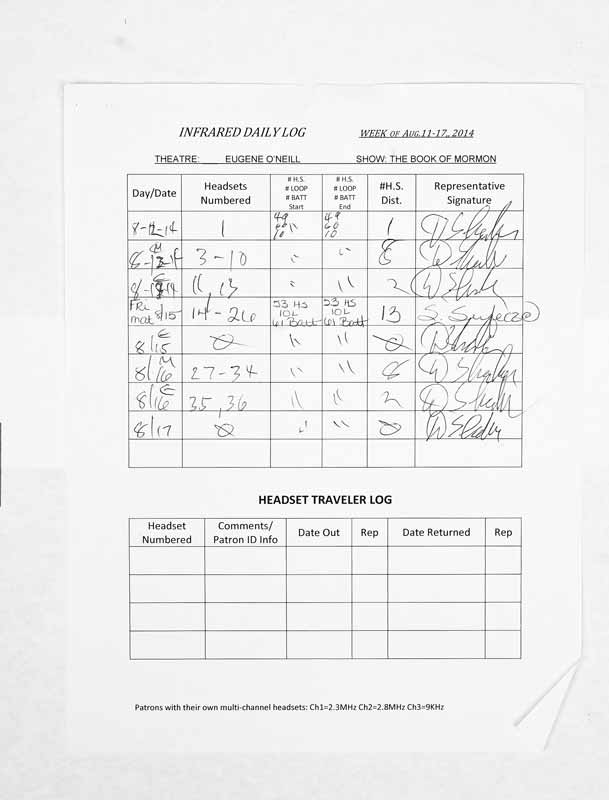 INFRARED DAILY LOG WEEK OF AUG.11-17, 2014
THEATRE: ___ EUGENE O'NEILL SHOW: THE BOOK OF MORMON
Day/Date
Headsets
Numbered
# H.S.
# LOOP
# BATT
Start
# H.S.
# LOOP
# BATT
End
#H.S.
Dist.
Representative
Signature
8-12-14 1 49 49 1
10 60
10
3-10 " " 8
11, 13 " " 2
FRI
mat 8/15 14-26 53 HS
10L
61 Batt 53 HS
10L
61 Batt 13
E
8/15 0 " " 0
M
8/16 27-34 " " 8
E
8/16 35, 36 " " 2
8/17 0 " " 0
HEADSET TRAVELER LOG
Headset
Numbered
Comments/
Patron ID Info
Date Out
Rep
Date Returned
Rep
Patrons with their own multi-channel headsets: Ch1=2.3MHz Ch2=2.8MHz Ch3=9KHz